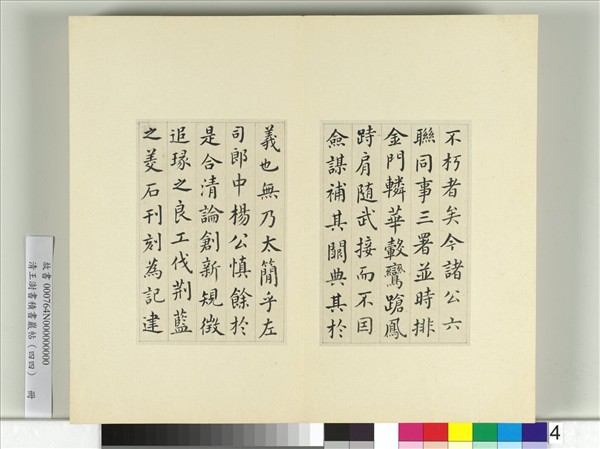 不朽者矣今諸公六
聯同事三署並時排
金門轔華轂鸞蹌鳳
跱肩随武接而不因
僉謀補其闕典其於
義也無乃太簡乎左
司郎中楊公慎餘於
是合清論創新規徵
追琢之良工伐荊藍
之美石刊刻為記建
故書 000764N000000000
清王澍書積書巖帖(四四) 冊
4